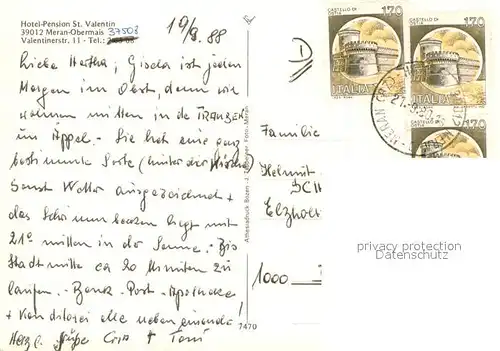 Hotel-Pension St. Valentin
39012 Meran-Obermais 37503
Valentinerstr. 11 - Tel.:
19/9.88
Liebe Hertha, Gisela ist jeden
Morgen im Obst, denn wir
wohnen mitten in die TRAUBEN
im Äppel. Sie hat eine ganz
bestimmte Sorte (hinter der Kirche)
Sonst Wetter ausgezeichnet +
das Schwimmbecken liegt mit
21° mitten in der Sonne. Bis
Stadtmitte ca 20 Minuten zu
laufen. - Bank - Post - Apotheke
+ Konditorei alle neben einander!
Herzl. Grüße Cris + Toni
Athesiadruck Bozen
7470
Familie
Helmut
SCH
Elzholz
1000
D
CASTELLO DI 170
ITALIA
CASTELLO DI 170
ITALIA
CASTELLO DI 170
MERAN
privacy protection
Datenschutz